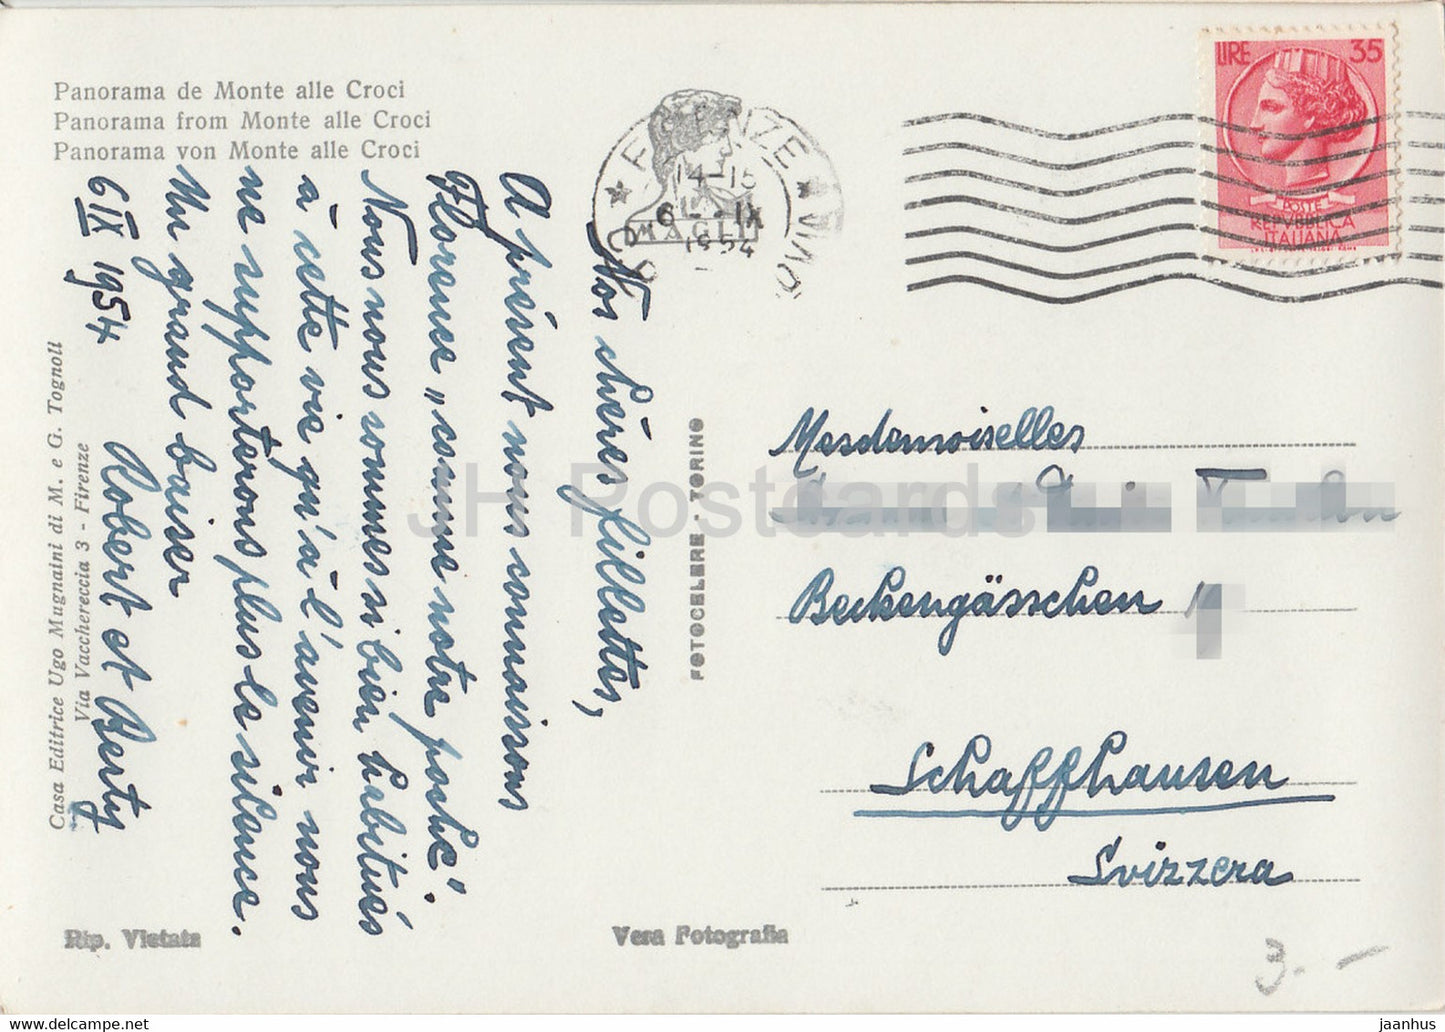 Panorama de Monte alle Croci
Panorama from Monte alle Croci
Panorama von Monte alle Croci
FIRENZE
14-15
6 - IX
1954
LIRE 35
POSTE
REPVBBLICA
ITALIANA
Nos chères fillettes,
A présent nous connaissons
Florence „comme notre poche".
Nous nous sommes si bien habitués
à cette vie qu'à l'avenir nous
ne supporterons plus le silence.
Un grand baiser
Robert et Berty
6 IX 1954
Casa Editrice Ugo Mugnaini di M. e G. Tognoli
Via Vacchereccia 3 - Firenze
FOTOCELERE - TORINO
Mesdemoiselles
Beckengässchen
Schaffhausen
Svizzera
Rip. Vietata
Vera Fotografia
3.-
JH Postcards
jaanhus
www.delcampe.net